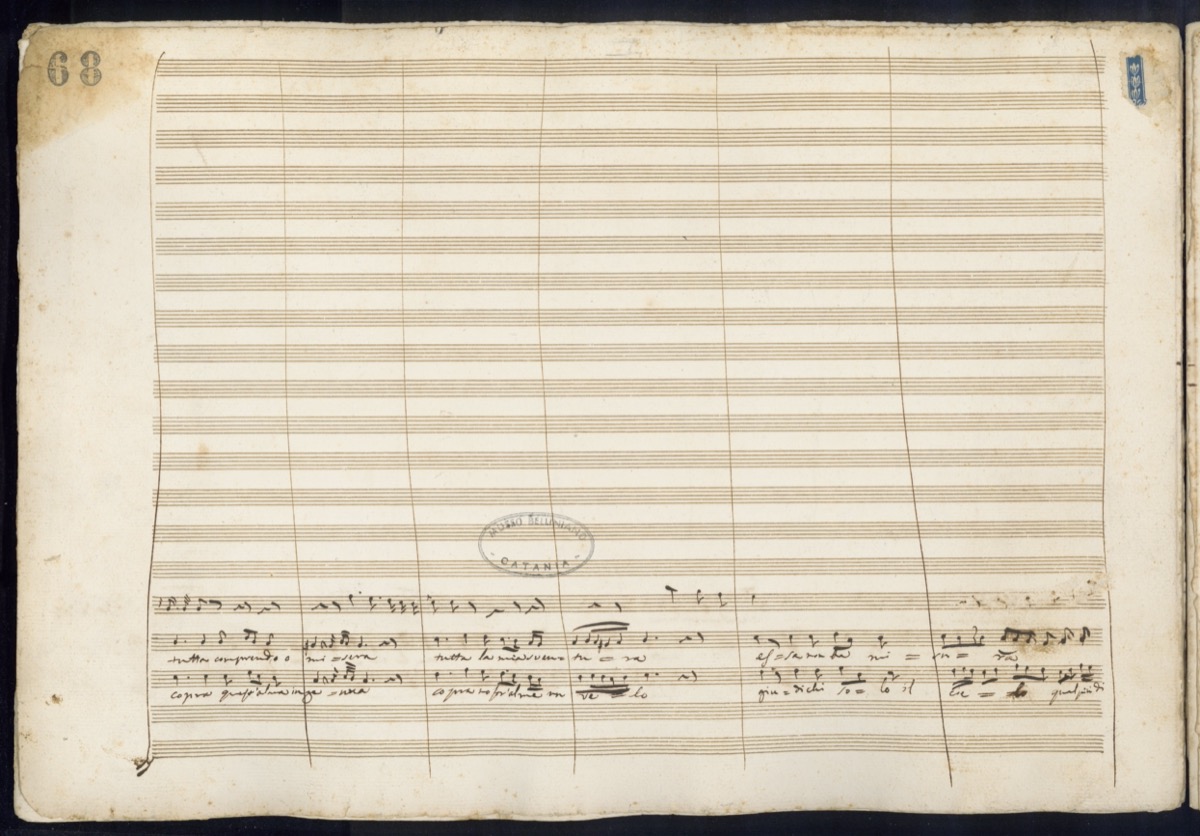 68
MUSEO BELLINIANO
- CATANIA -
tutta comprendo o mi = sera tutta la mia sven tu = ra es = sa non ha mi = su = ra
copra quest'alma inge = nua copra un ve = lo giu = dichi so = lo il cie = lo qual più di